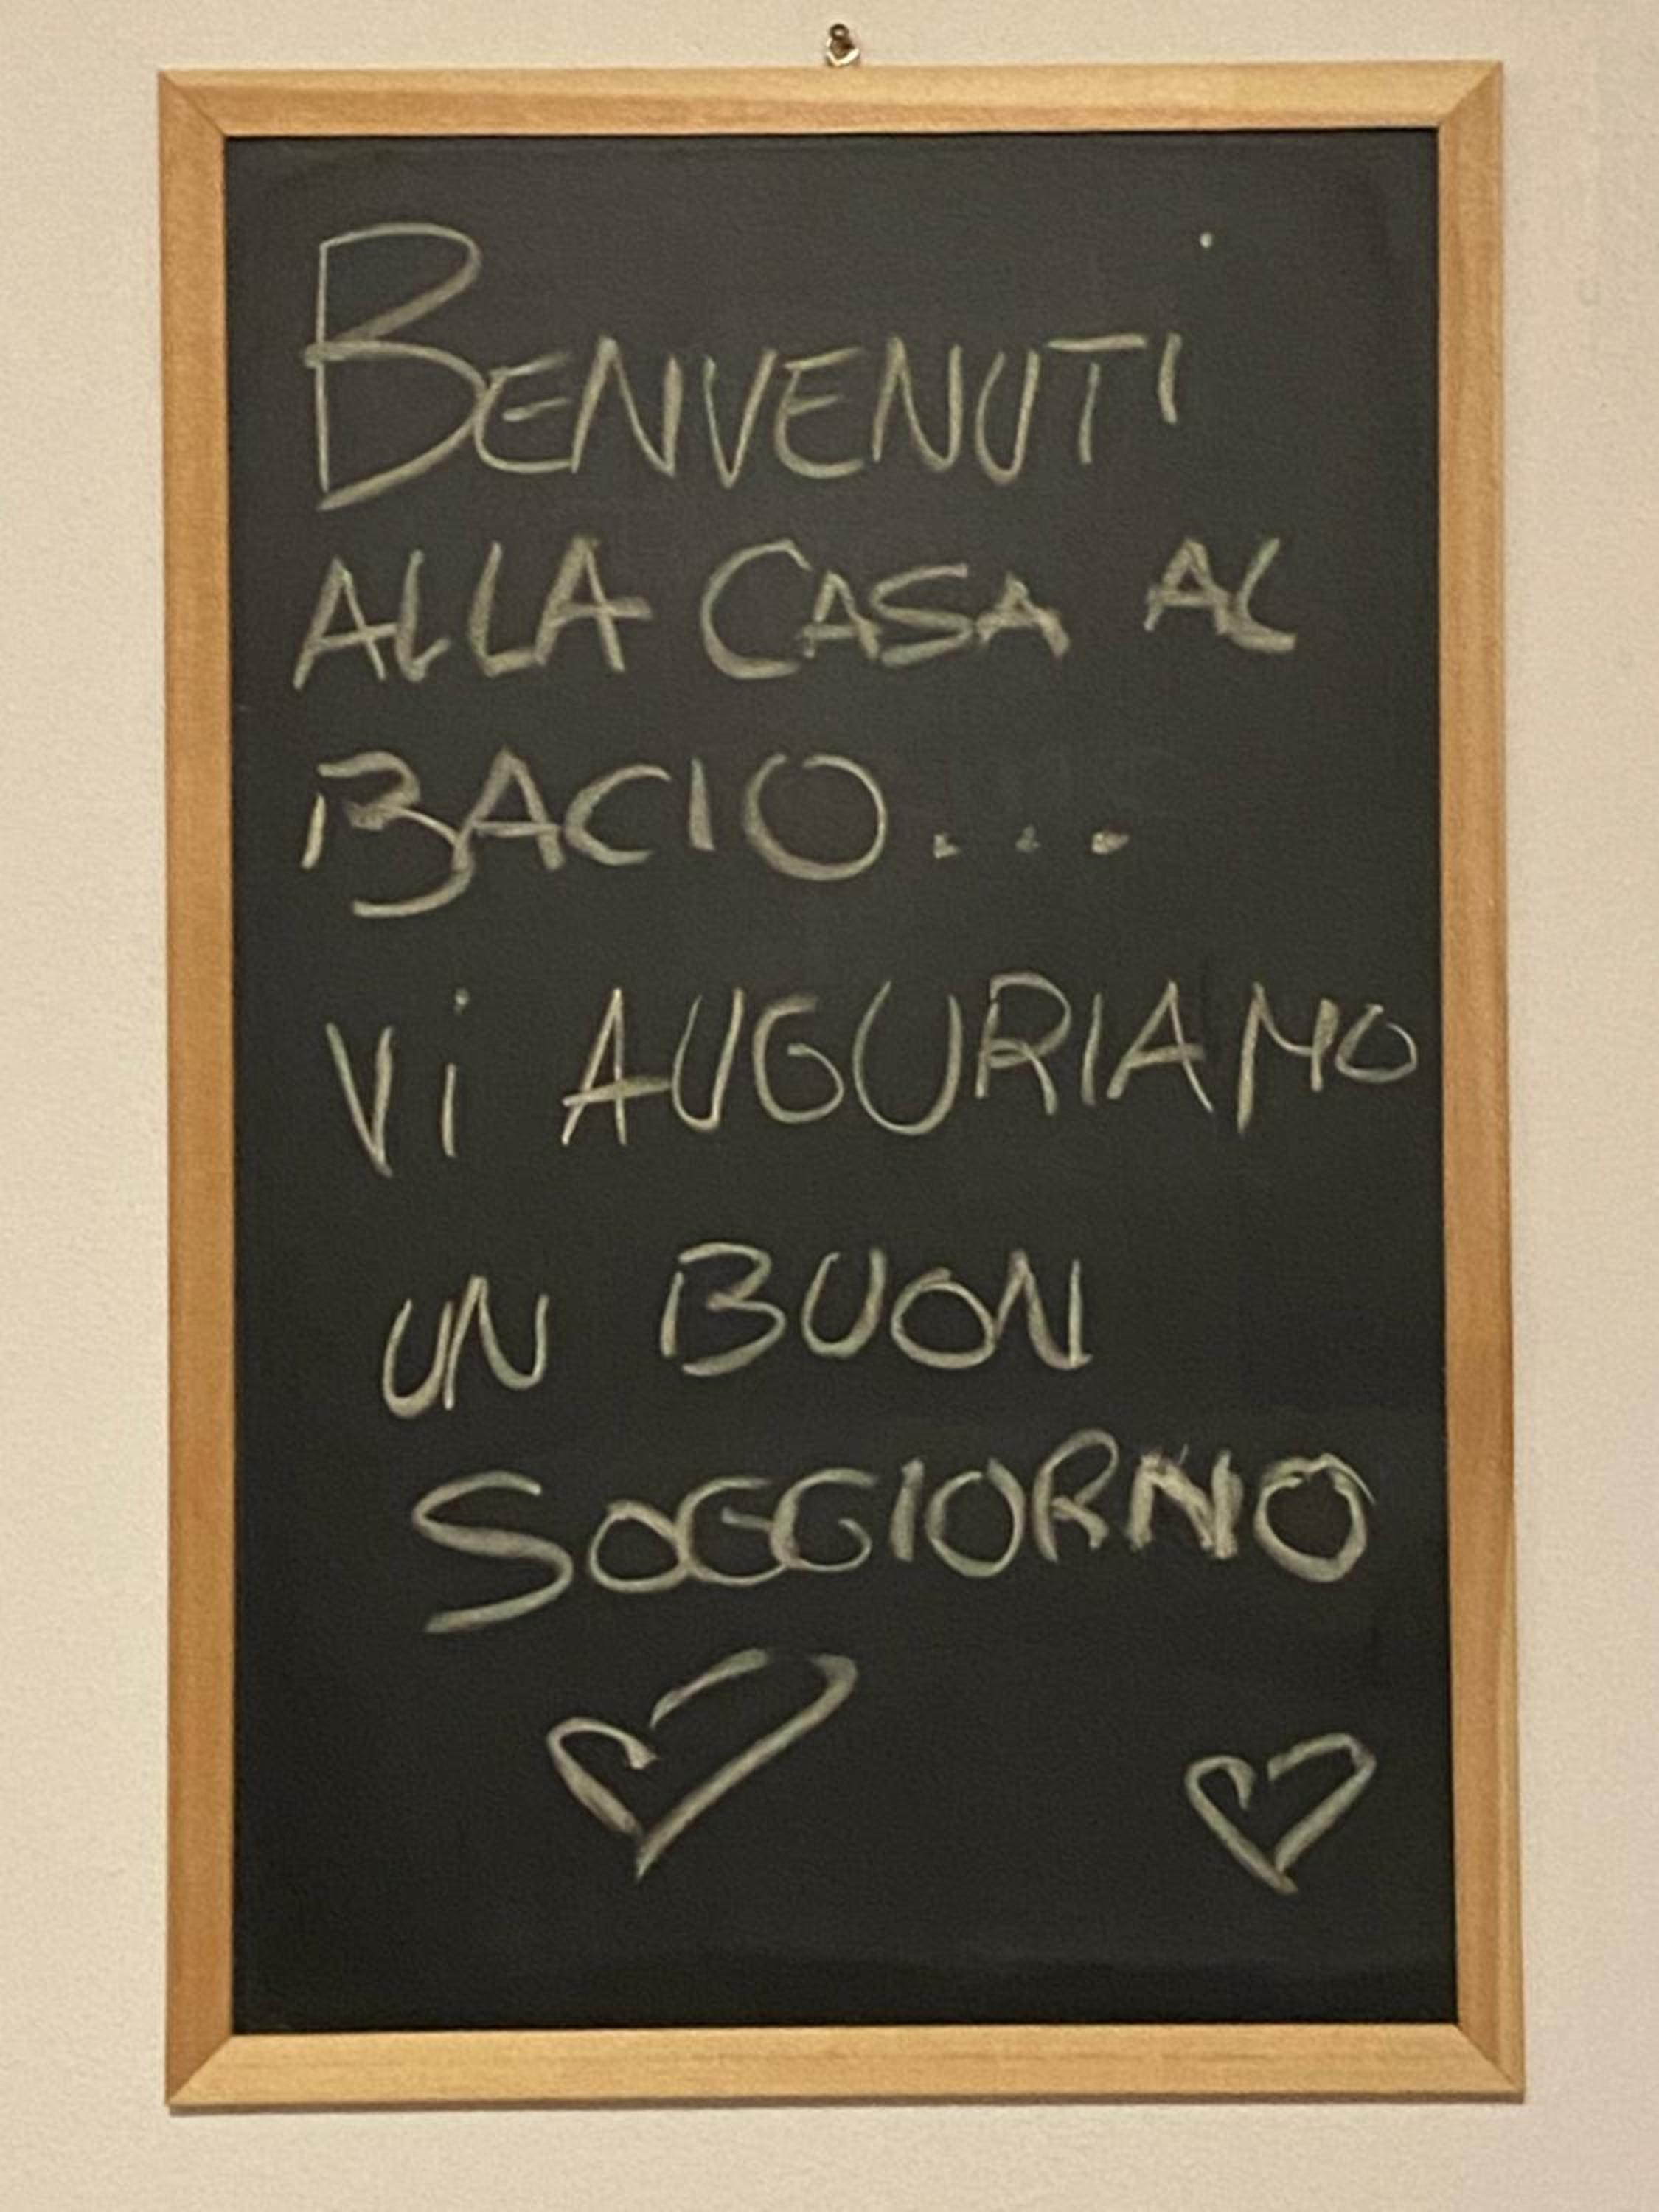 BENVENUTI
ALLA CASA AL
BACIO...
Vi AUGURIAMO
UN BUON
SOGGIORNO